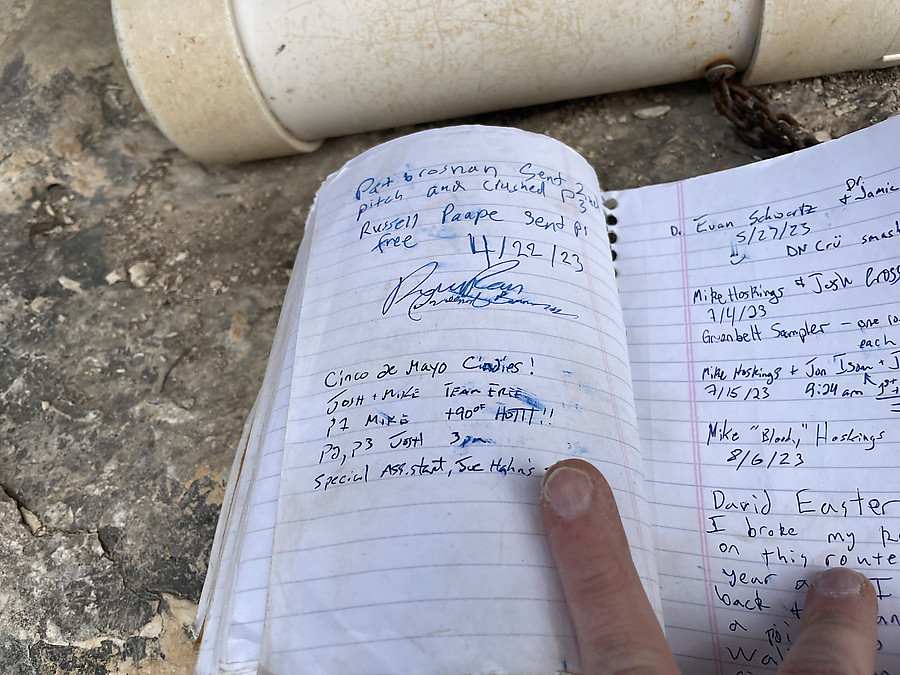 Pat brosnan Sent 2nd
pitch and crushed P3
Russell Paape send P1
free 4/22/23
Cinco de Mayo Cindies!
JOSH + MIKE TEAM FREE
P1 MIKE +90° HOTT!!
P2, P3 JOSH 3pm
Special Assistant, Joe Hahn's
Dr. Evan Schwartz & Dr. Jamie
5/27/23
DN Crü smash
Mike Hoskings & Josh Cross
7/4/23
Greenbelt Sampler – one
each
Mike Hoskings + Jon Isom + J
7/15/23 9:24 am
Mike "Bloody" Hoskings
8/6/23
David Easter
I broke my
on this route
year I
back &
a